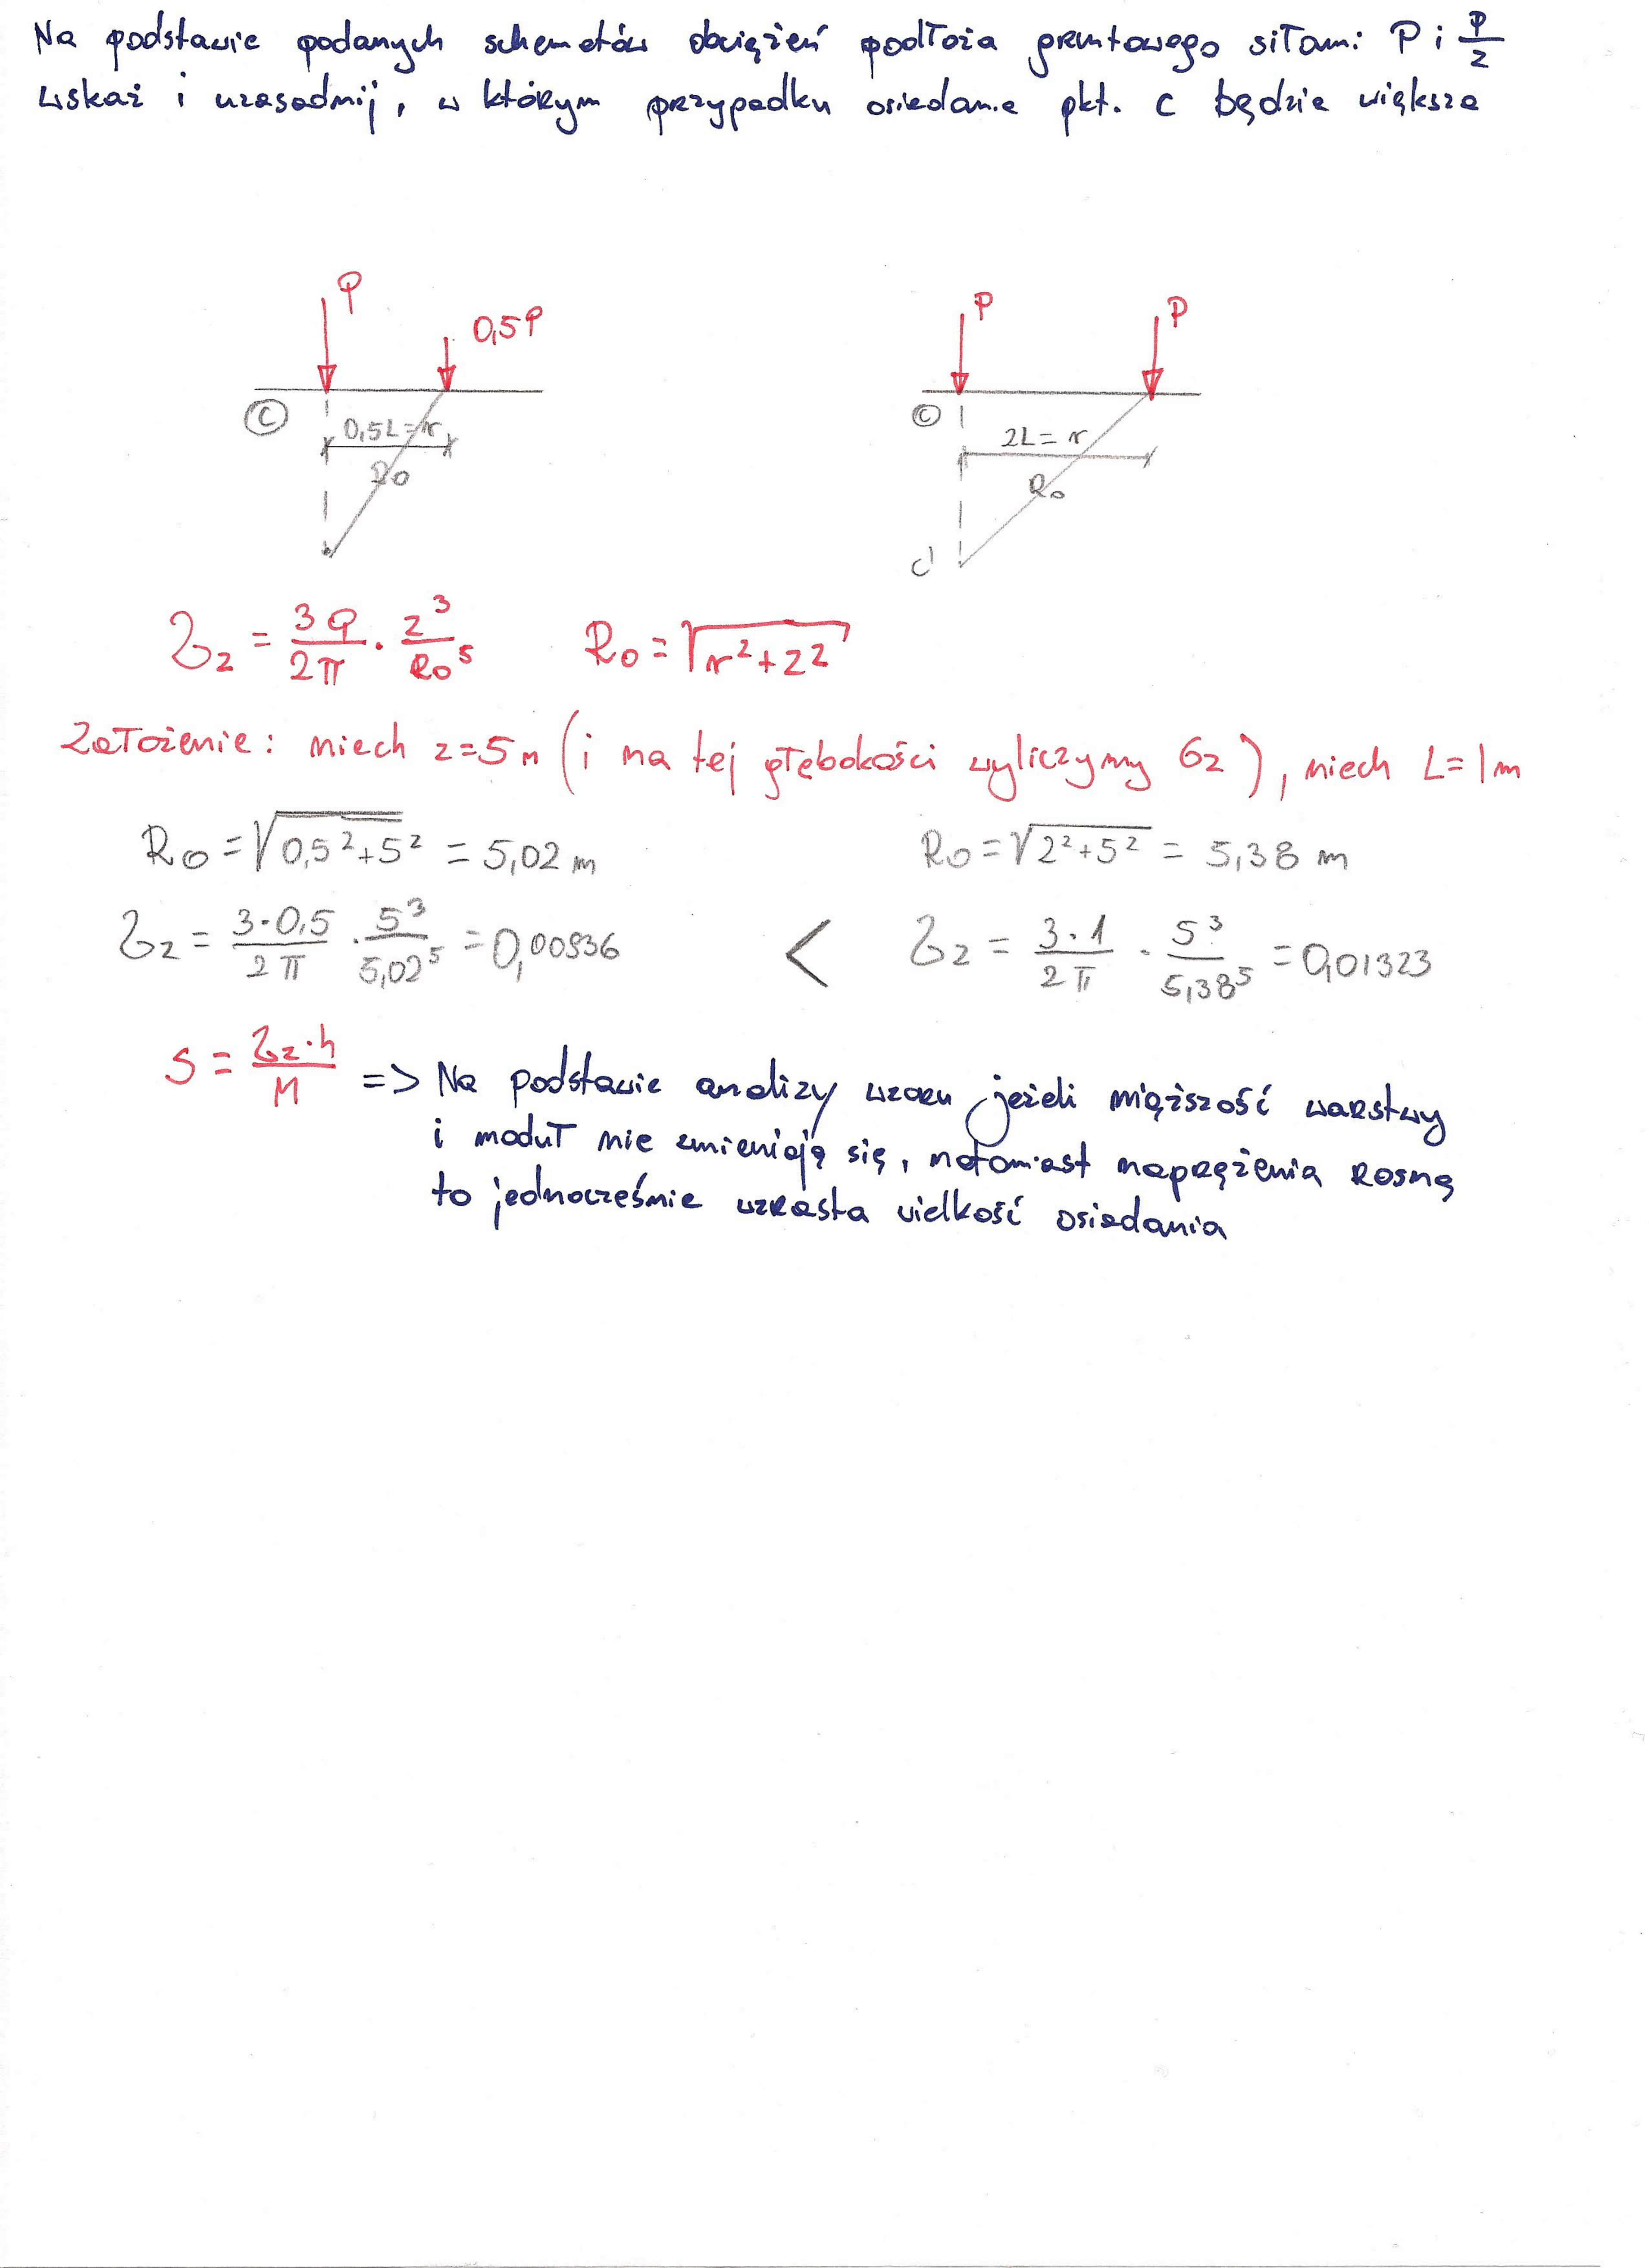 Na podstawie podanych schematów obciążeń podłoża gruntowego siłami P i P/2
wskaż i uzasadnij, w którym przypadku osiadanie pkt. C będzie większe
P
0,5P
P
P
C
0,5L=r
R₀
C
2L = r
R₀
d
σz = 3Q/2π · z³/R₀⁵ R₀ = √(r²+z²)
Założenie: niech z=5m (i na tej głębokości wyliczymy σz), niech L=1m
R₀ = √(0,5²+5²) = 5,02 m R₀ = √(2²+5²) = 5,38 m
σz = 3·0,5/2π · 5³/5,02⁵ = 0,00936 < σz = 3·1/2π · 5³/5,38⁵ = 0,01323
S = σz·h/M => Na podstawie analizy wzoru jeżeli miąższość warstwy
i moduł nie zmieniają się, natomiast naprężenia rosną
to jednocześnie wzrasta wielkość osiadania